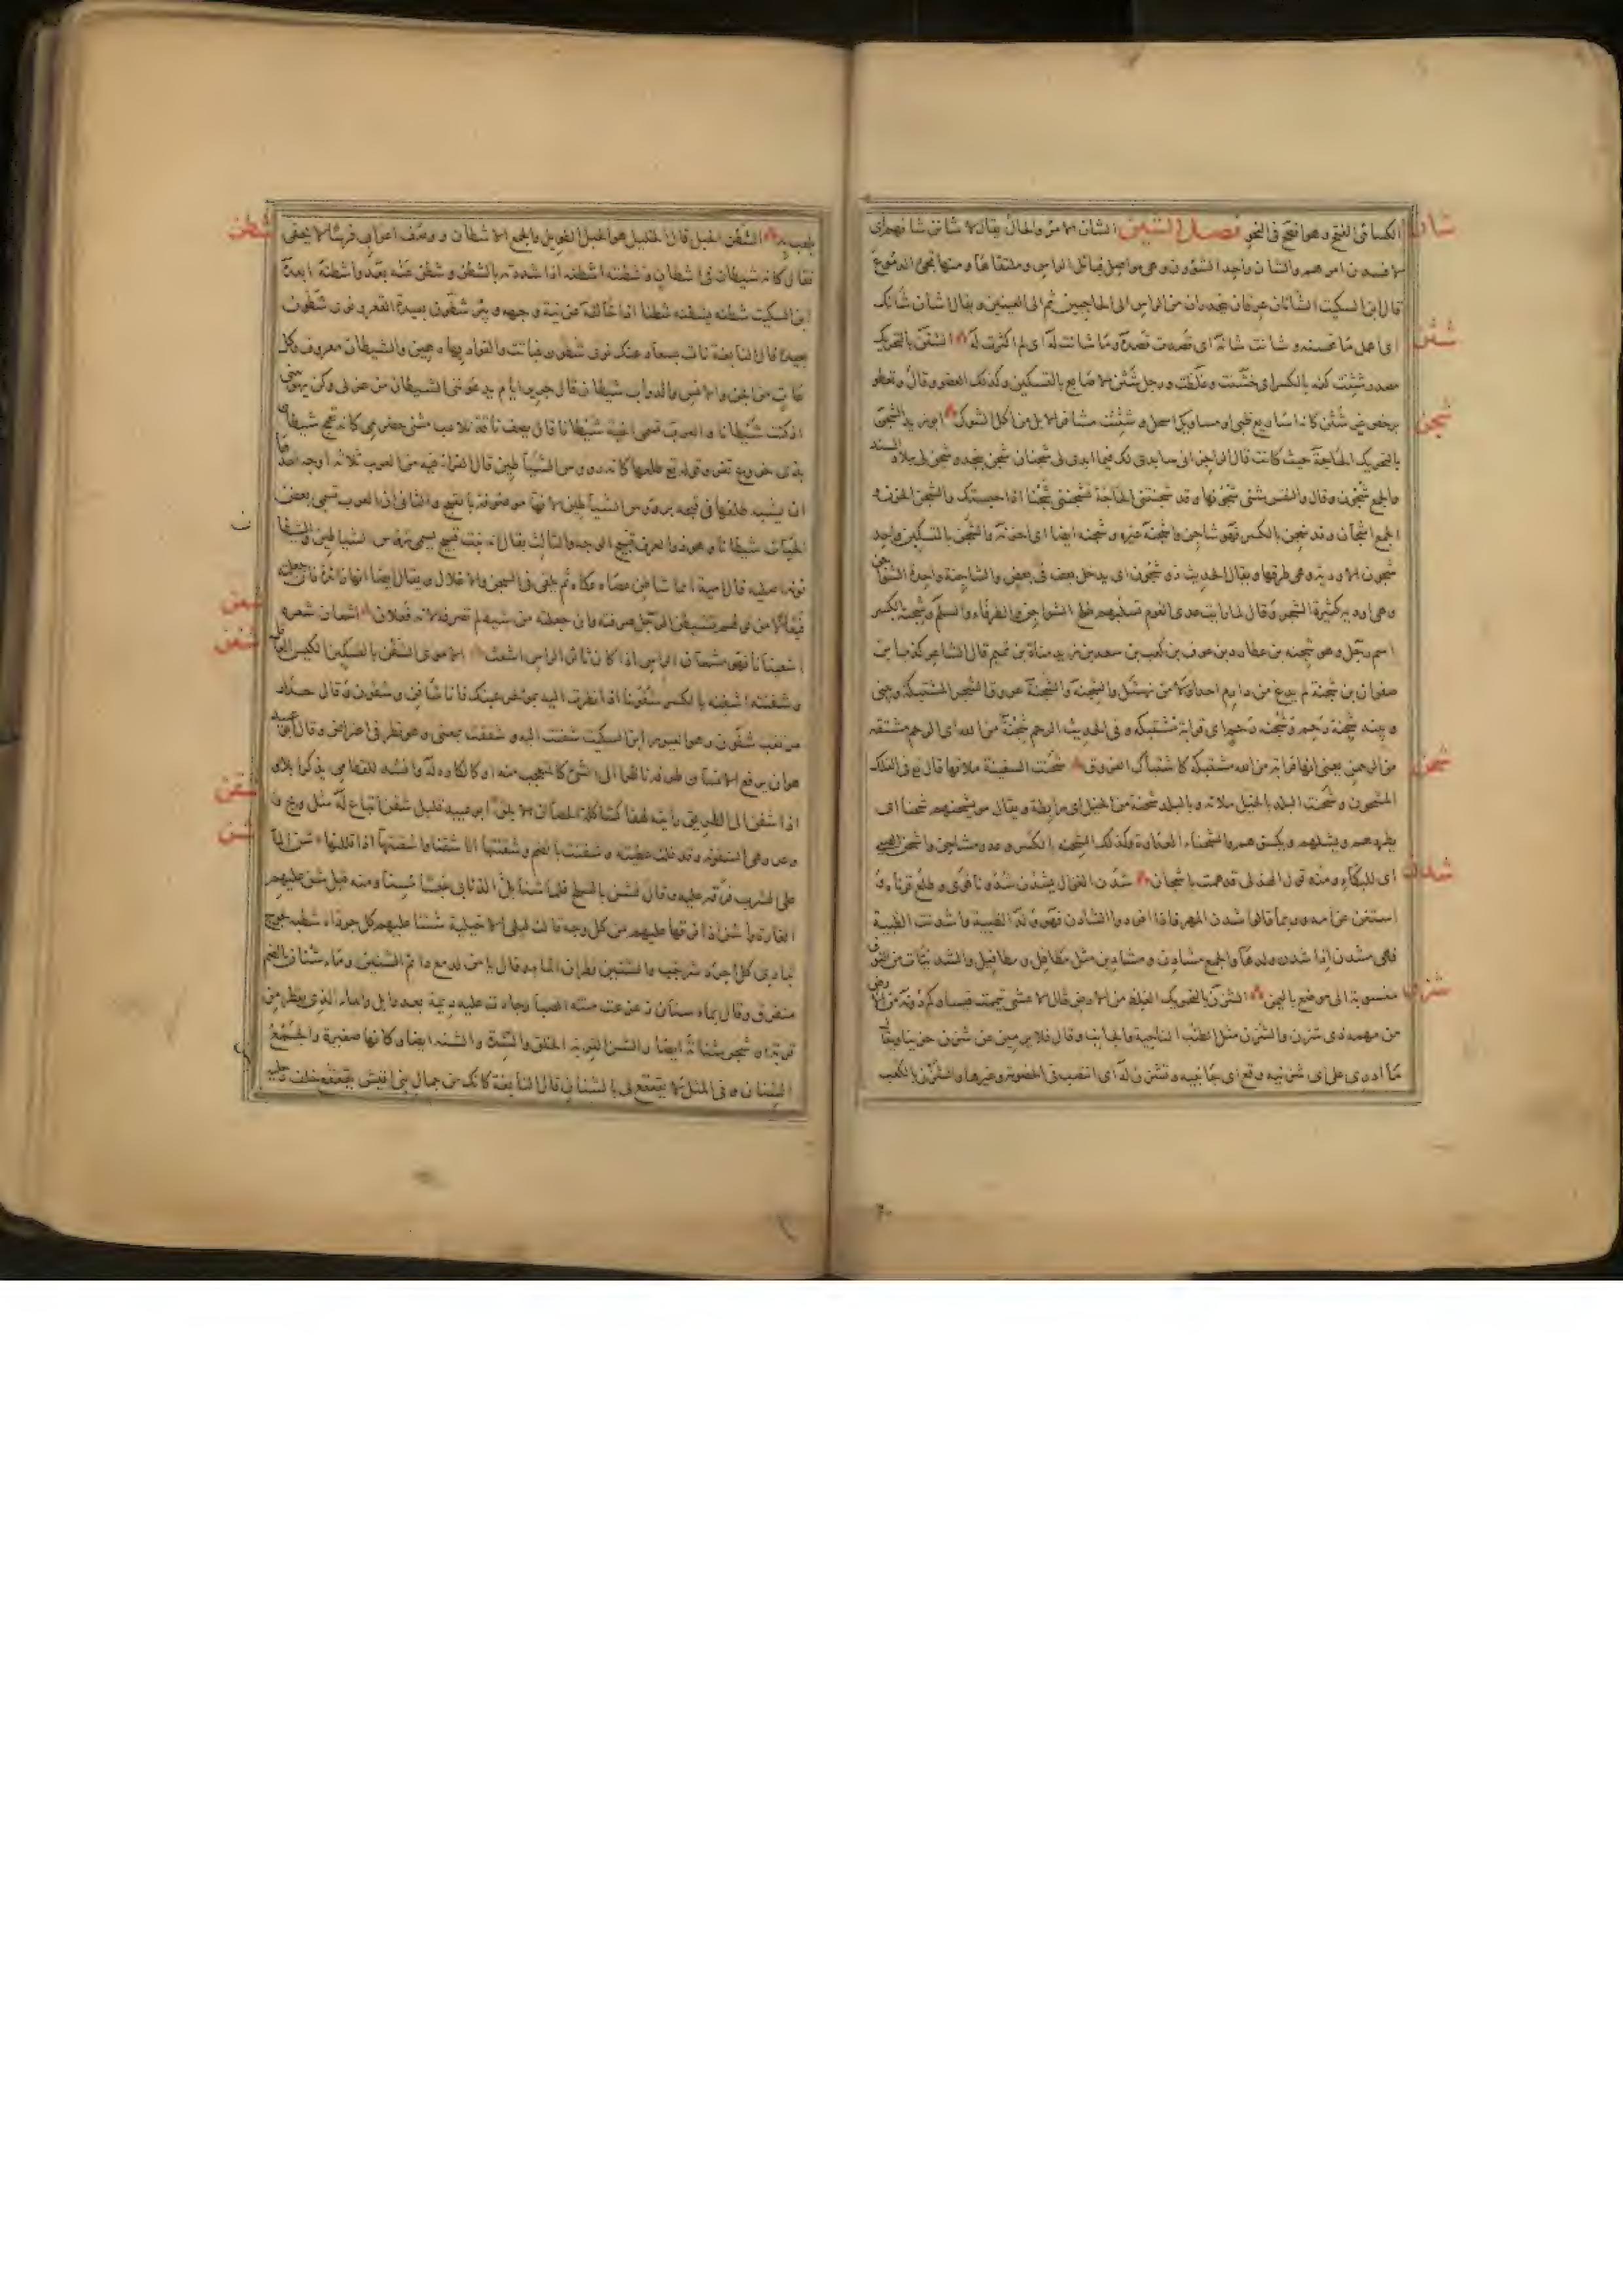 شان
الكسائى الفتح وهو افصح فى النحو فصل الشين الشان الامر والحال يقال لا شانن شانهم اى
لافسدن امرهم والشان واحد الشؤون وهى مواصل قبائل الراس وملتقاها ومنها تجئ الدموع
قال ابن السكيت الشانان عرقان ينحدران من الراس الى الحاجبين ثم الى العينين ويقال اشان شانك
شثن
اى اعمل ما تحسنه وشانت شانه اى قصدت قصده وما شانت له اى لم اكترث له الشثن بالتحريك
مصدر شثنت كفه بالكسر اى خشنت وغلظت ورجل شثن الاصابع بالتسكين وكذلك العضو وقال وتعطو
شجن
برخص غير شثن كانه اساريع ظبى او مساويك اسحل وشثنت مشافر الابل من اكل الشوك ابو زيد الشجن
بالتحريك الحاجة حيث كانت قال الراجز انى سابدى لك فيما ابدى لى شجنان شجن بنجد وشجن لى ببلاد السند
والجمع شجون وقال والنفس شتى شجونها وقد شجنتنى الحاجة تشجننى شجنا اذا حبستك والشجن الحزن و
الجمع اشجان وقد شجن بالكسر فهو شاجن واشجنه غيره وشجنه ايضا اى احزنه والشجن بالتسكين واحد
شجون الاودية وهى طرقها ويقال الحديث ذو شجون اى يدخل بعضه فى بعض والشاجنة واحدة الشواجن
وهى اودية كثيرة الشجر وقال لما رايت عدى القوم تسلبهم طلح الشواجن والطرفاء والسلم وشجنة بالكسر
اسم رجل وهو شجنه بن عطارد بن عوف بن كعب بن سعد بن زيد مناة بن تميم قال الشاعر كرب بن
صفوان بن شجنة لم يدع من دارم احدا ولا من نهشل والشجنة والشجنة عروق الشجر المشتبكة وبينى
وبينه شجنة رحم وشجنة رحم اى قرابة مشتبكة وفى الحديث الرحم شجنة من الله اى الرحم مشتقة
شحن
من الرحمن يعنى انها قرابة من الله مشتبكة كاشتباك العروق شحنت السفينة ملاتها قال تع فى الفلك
المشحون وشحنت البلد بالخيل ملاته وبالبلد شحنة من الخيل اى رابطة ويقال مر يشحنهم شحنا اى
يطردهم ويشلهم ويكسؤهم والشحناء العداوة وكذلك الشحنه بالكسر وعدو مشاحن واشحن الصبى
شدن
اى للبكاء ومنه قول الهذلى قد همت باشحان شدن الغزال يشدن شدونا قوى وطلع قرناه و
استغنى عن امه وربما قالوا شدن المهر فاذا افردوا الشادن فهو ولد الظبية واشدنت الظبية
فهى مشدن اذا شدن ولدها والجمع مشادن ومشادين مثل مطافل ومطافيل والشدنيات من النوق
شزن
منسوبة الى موضع باليمن الشزن بالتحريك الغليظ من الارض قال الاعشى تيممت قيسا وكم دونه من الارض
من مهمه ذى شزن والشزن مثل الطنب الناحية والجانب وقال فلا يرمين عن شزن حزينا ويقال
ما ادرى على اى شزنيه وقع اى جانبيه وتشزن له اى انتصب فى الخصومة وغيرها والشزن الكعب
شطن
يلعب به الشطن الحبل قال الخليل هو الحبل الطويل والجمع الاشطان ووصف اعرابى فرسا لا يحفى
فقال كانه شيطان فى اشطان وشطنته اشطنه اذا شددته بالشطن وشطن عنه بعد واشطنه ابعده
ابن السكيت شطنه يشطنه شطنا اذا خالفه عن نية وجهه وبئر شطون بعيدة القعر ونوى شطون
بعيدة قال النابغة نات بسعاد عنك نوى شطون فبانت والفؤاد بها رهين والشيطان معروف وكل
عات من الجن والانس والدواب شيطان قال جرير ايام يدعوننى الشيطان من غزلى وكن يهويننى
اذ كنت شيطانا والعرب تسمى الحية شيطانا قال يصف ناقة تلاعب مثنى حضرمى كانه تعمج شيطان
بذى خروع قفر وقوله تع طلعها كانه رءوس الشياطين قال الفراء فيه من العرب ثلاثة اوجه احدها
ان يشبه طلعها فى قبحه برءوس الشياطين لانها موصوفة بالقبح والثانى ان العرب تسمى بعض
الحيات شيطانا وهو ذو العرف قبيح الوجه والثالث يقال انه نبت قبيح يسمى رءوس الشياطين والشيطان
نونه اصلية قال امية ايما شاطن عصاه عكاه ثم يلقى فى السجن والاغلال ويقال ايضا انها زائدة فان جعلته
شعن
فيعالا من قولهم تشيطن الرجل صرفته وان جعلته من شيط لم تصرفه لانه فعلان اشعان شعره
شفن
اشعينانا فهو مشعان الراس اذا كان ثائر الراس اشعث الاموى الشفن بالتسكين الكيس العاقل
وشفنته اشفنه بالكسر شفونا اذا نظرت اليه بمؤخر عينك فانا شافن وشفون وقال حذار
مرتقب شفون وهو الغيور ابن السكيت شفنت اليه وشنفت بمعنى وهو نظر فى اعتراض وقال ابو عبيد
هو ان يرفع الانسان طرفه ناظرا الى الشئ كالمتعجب منه او كالكاره له وانشد للقطامى يذكر ابلا و
شقن
اذا شفن الى الطريق راينه لهقا كشاكلة الحصان الابلق ابو عبيد قليل شقن اتباع له مثل وتح و
شن
وعر وهى الشقونه وقد قلت عطيته وشقنت بالضم وشقنتها انا شقنا واشقنتها اذا قللتها شن الماء
على الشراب فرقه عليه
الغارة واشن اذا فرقها عليهم من كل وجه قالت ليلى الاخيلية شننا عليهم كل جرداء شطبة لجوج
تبارى كل اجرد شرجب والتشنين قطران الماء وقال يا من لدمع دائم التشنين وماء شنان بالضم
متفرق
القربة الخلق والشنة والشنه ايضا وكانها صغيرة والجمع
الشنان وفى المثل لا يقعقع لى بالشنان قال النابغة كانك من جمال بنى اقيش يقعقع خلف رجليه